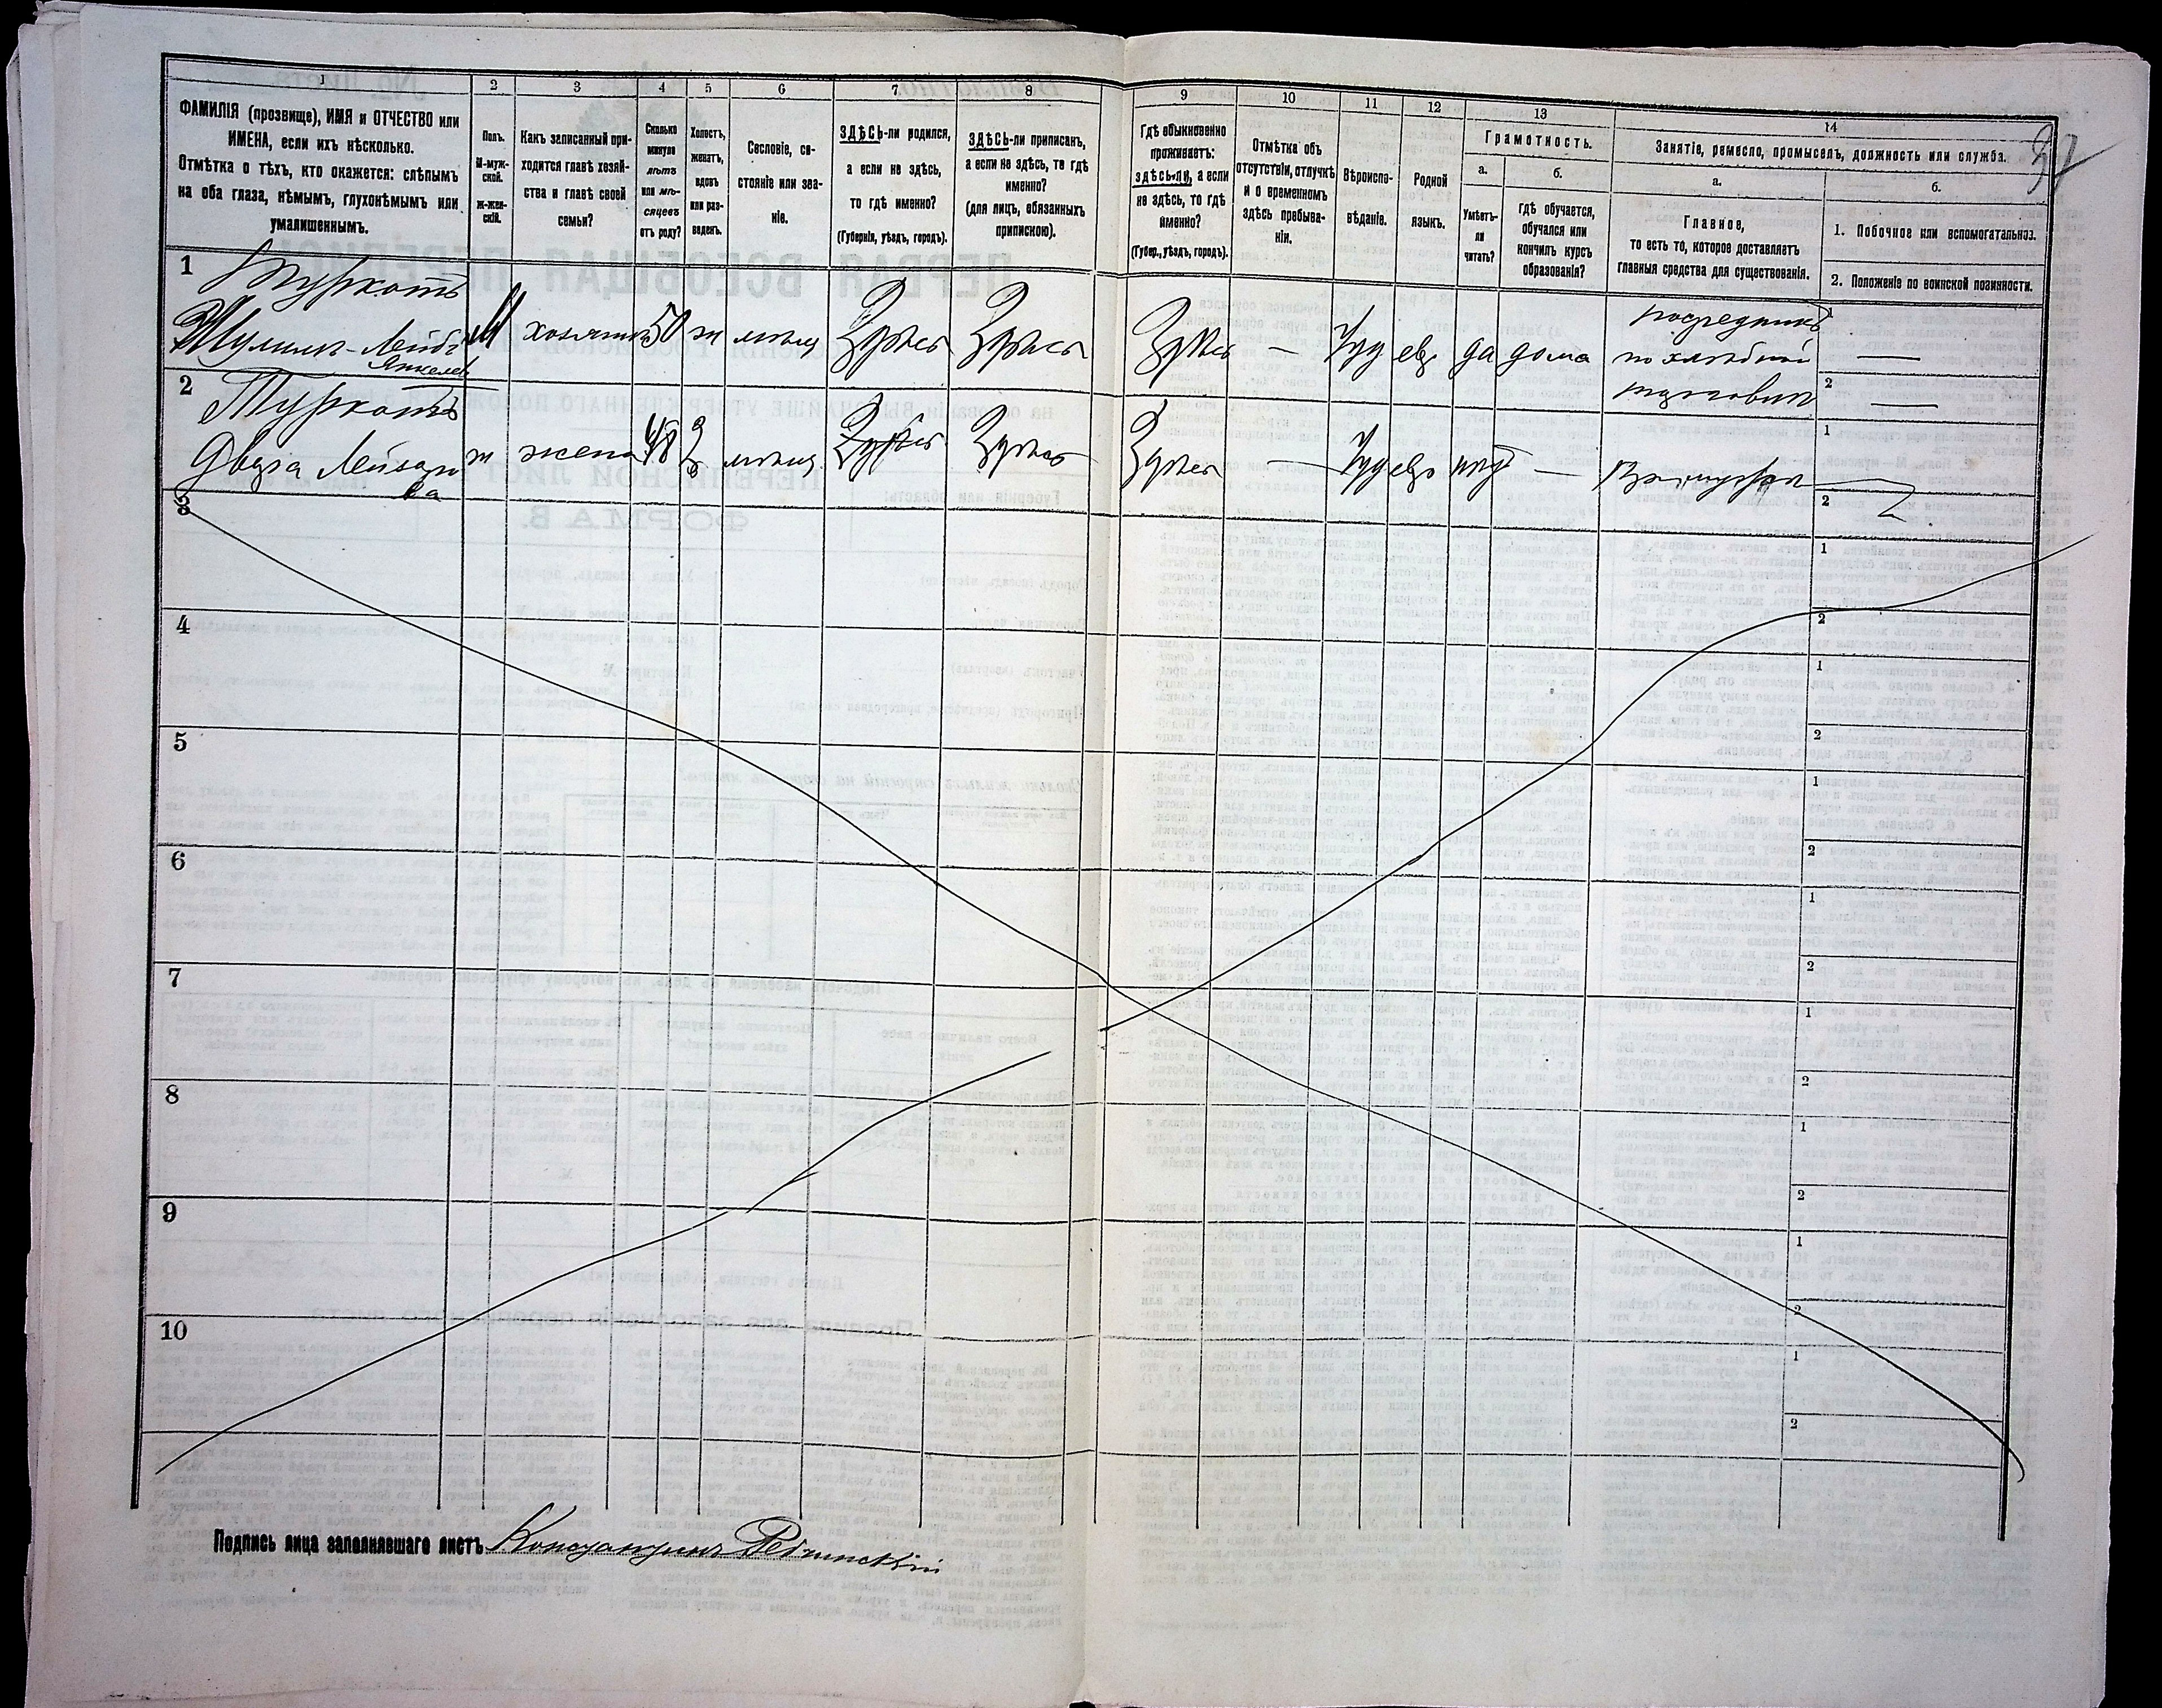 1
2
3
4
5
6
7
8
ФАМИЛІЯ (прозвище), ИМЯ и ОТЧЕСТВО или
ИМЕНА, если ихъ нѣсколько.
Отмѣтка о тѣхъ, кто окажется: слѣпымъ
на оба глаза, нѣмымъ, глухонѣмымъ или
умалишеннымъ.
Полъ.
М-муж-
ской.
ж-жен-
скій.
Какъ записанный при-
ходится главѣ хозяй-
ства и главѣ своей
семьи?
Сколько
минуло
лѣтъ
или мѣ-
сяцевъ
отъ роду?
Холостъ,
женатъ,
вдовъ
или раз-
веденъ.
Сословіе, со-
стояніе или зва-
ніе.
ЗДѢСЬ-ли родился,
а если не здѣсь,
то гдѣ именно?
(Губернія, уѣздъ, городъ).
ЗДѢСЬ-ли приписанъ,
а если не здѣсь, то гдѣ
именно?
(для лицъ, обязанныхъ
припискою).
9
10
11
12
13
14
Гдѣ обыкновенно
проживаетъ:
здѣсь-ли, а если
не здѣсь, то гдѣ
именно?
(Губер., уѣздъ, городъ).
Отмѣтка объ
отсутствіи, отлучкѣ
и о временномъ
здѣсь пребыва-
ніи.
Вѣроиспо-
вѣданіе.
Родной
языкъ.
Грамотность.
а.
Умѣетъ-
ли
читать?
б.
гдѣ обучается,
обучался или
кончилъ курсъ
образованія?
Занятіе, ремесло, промыселъ, должность или служба.
а.
Главное,
то есть то, которое доставляетъ
главныя средства для существованія.
б.
1. Побочное или вспомогательное.
2. Положеніе по воинской повинности.
1
Туркотъ
Шулимъ-Лейбъ
Янкелевъ
М
хозяинъ
50
ж
мѣщ
Здѣсь
Здѣсь
Здѣсь
—
Іуд
евр
да
дома
посредникъ
по хлѣбной
торговли
1
—
2
—
2
Туркотъ
Двойра Лейзоро
ва
ж
жена
48
З
мѣщ
Здѣсь
Здѣсь
Здѣсь
—
Іуд
евр
нѣт
—
При мужѣ
1
2
3
1
2
4
1
2
5
1
2
6
1
2
7
1
2
8
1
2
9
1
2
10
1
2
Подпись лица заполнявшаго листъ Константинъ